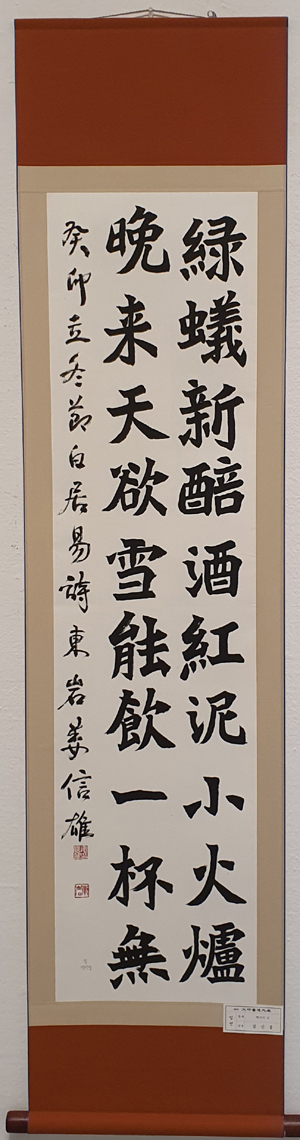 綠蟻新醅酒紅泥小火爐
晚来天欲雪能飲一杯無
癸卯立冬節白居易詩東岩姜信雄